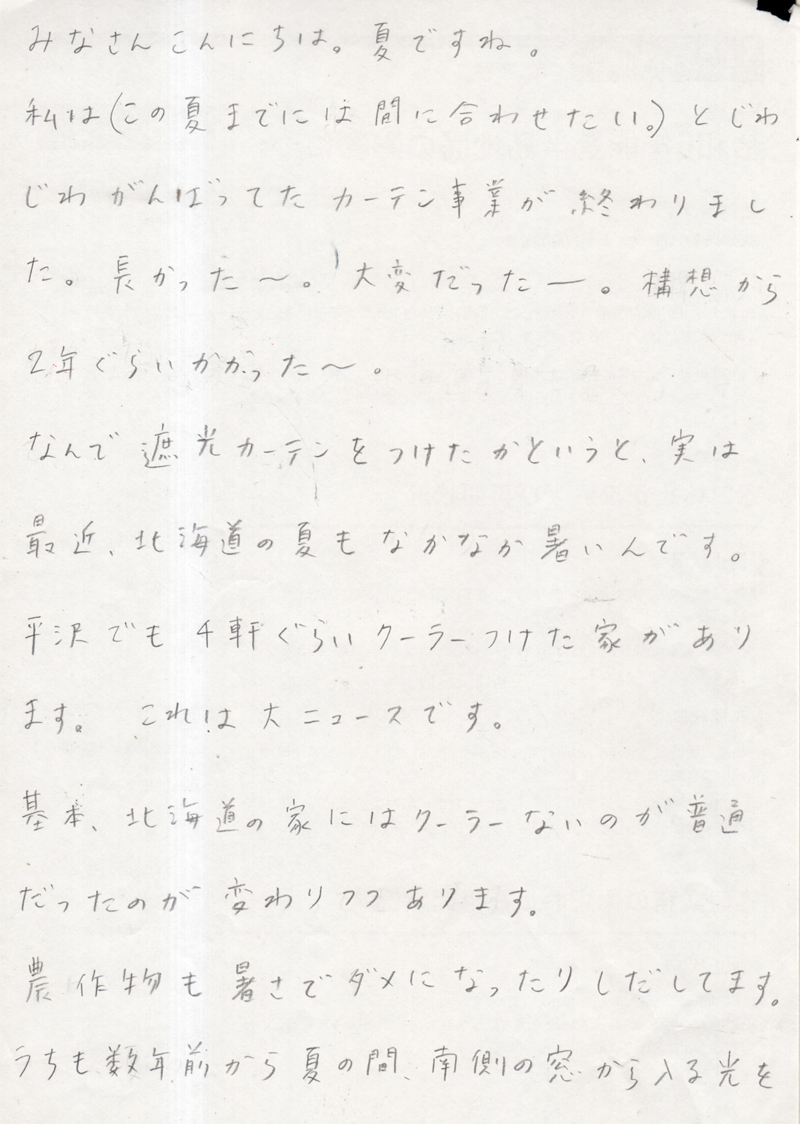 みなさんこんにちは。夏ですね。
私は(この夏までには間に合わせたい。)とじわ
じわがんばってたカーテン事業が終わりまし
た。長かった〜。大変だったー。構想から
2年ぐらいかかった〜。
なんで遮光カーテンをつけたかというと、実は
最近、北海道の夏もなかなか暑いんです。
平沢でも4軒ぐらいクーラーつけた家があり
ます。 これは大ニュースです。
基本、北海道の家にはクーラーないのが普通
だったのが変わりつつあります。
農作物も暑さでダメになったりしだしてます。
うちも数年前から夏の間、南側の窓から入る光を